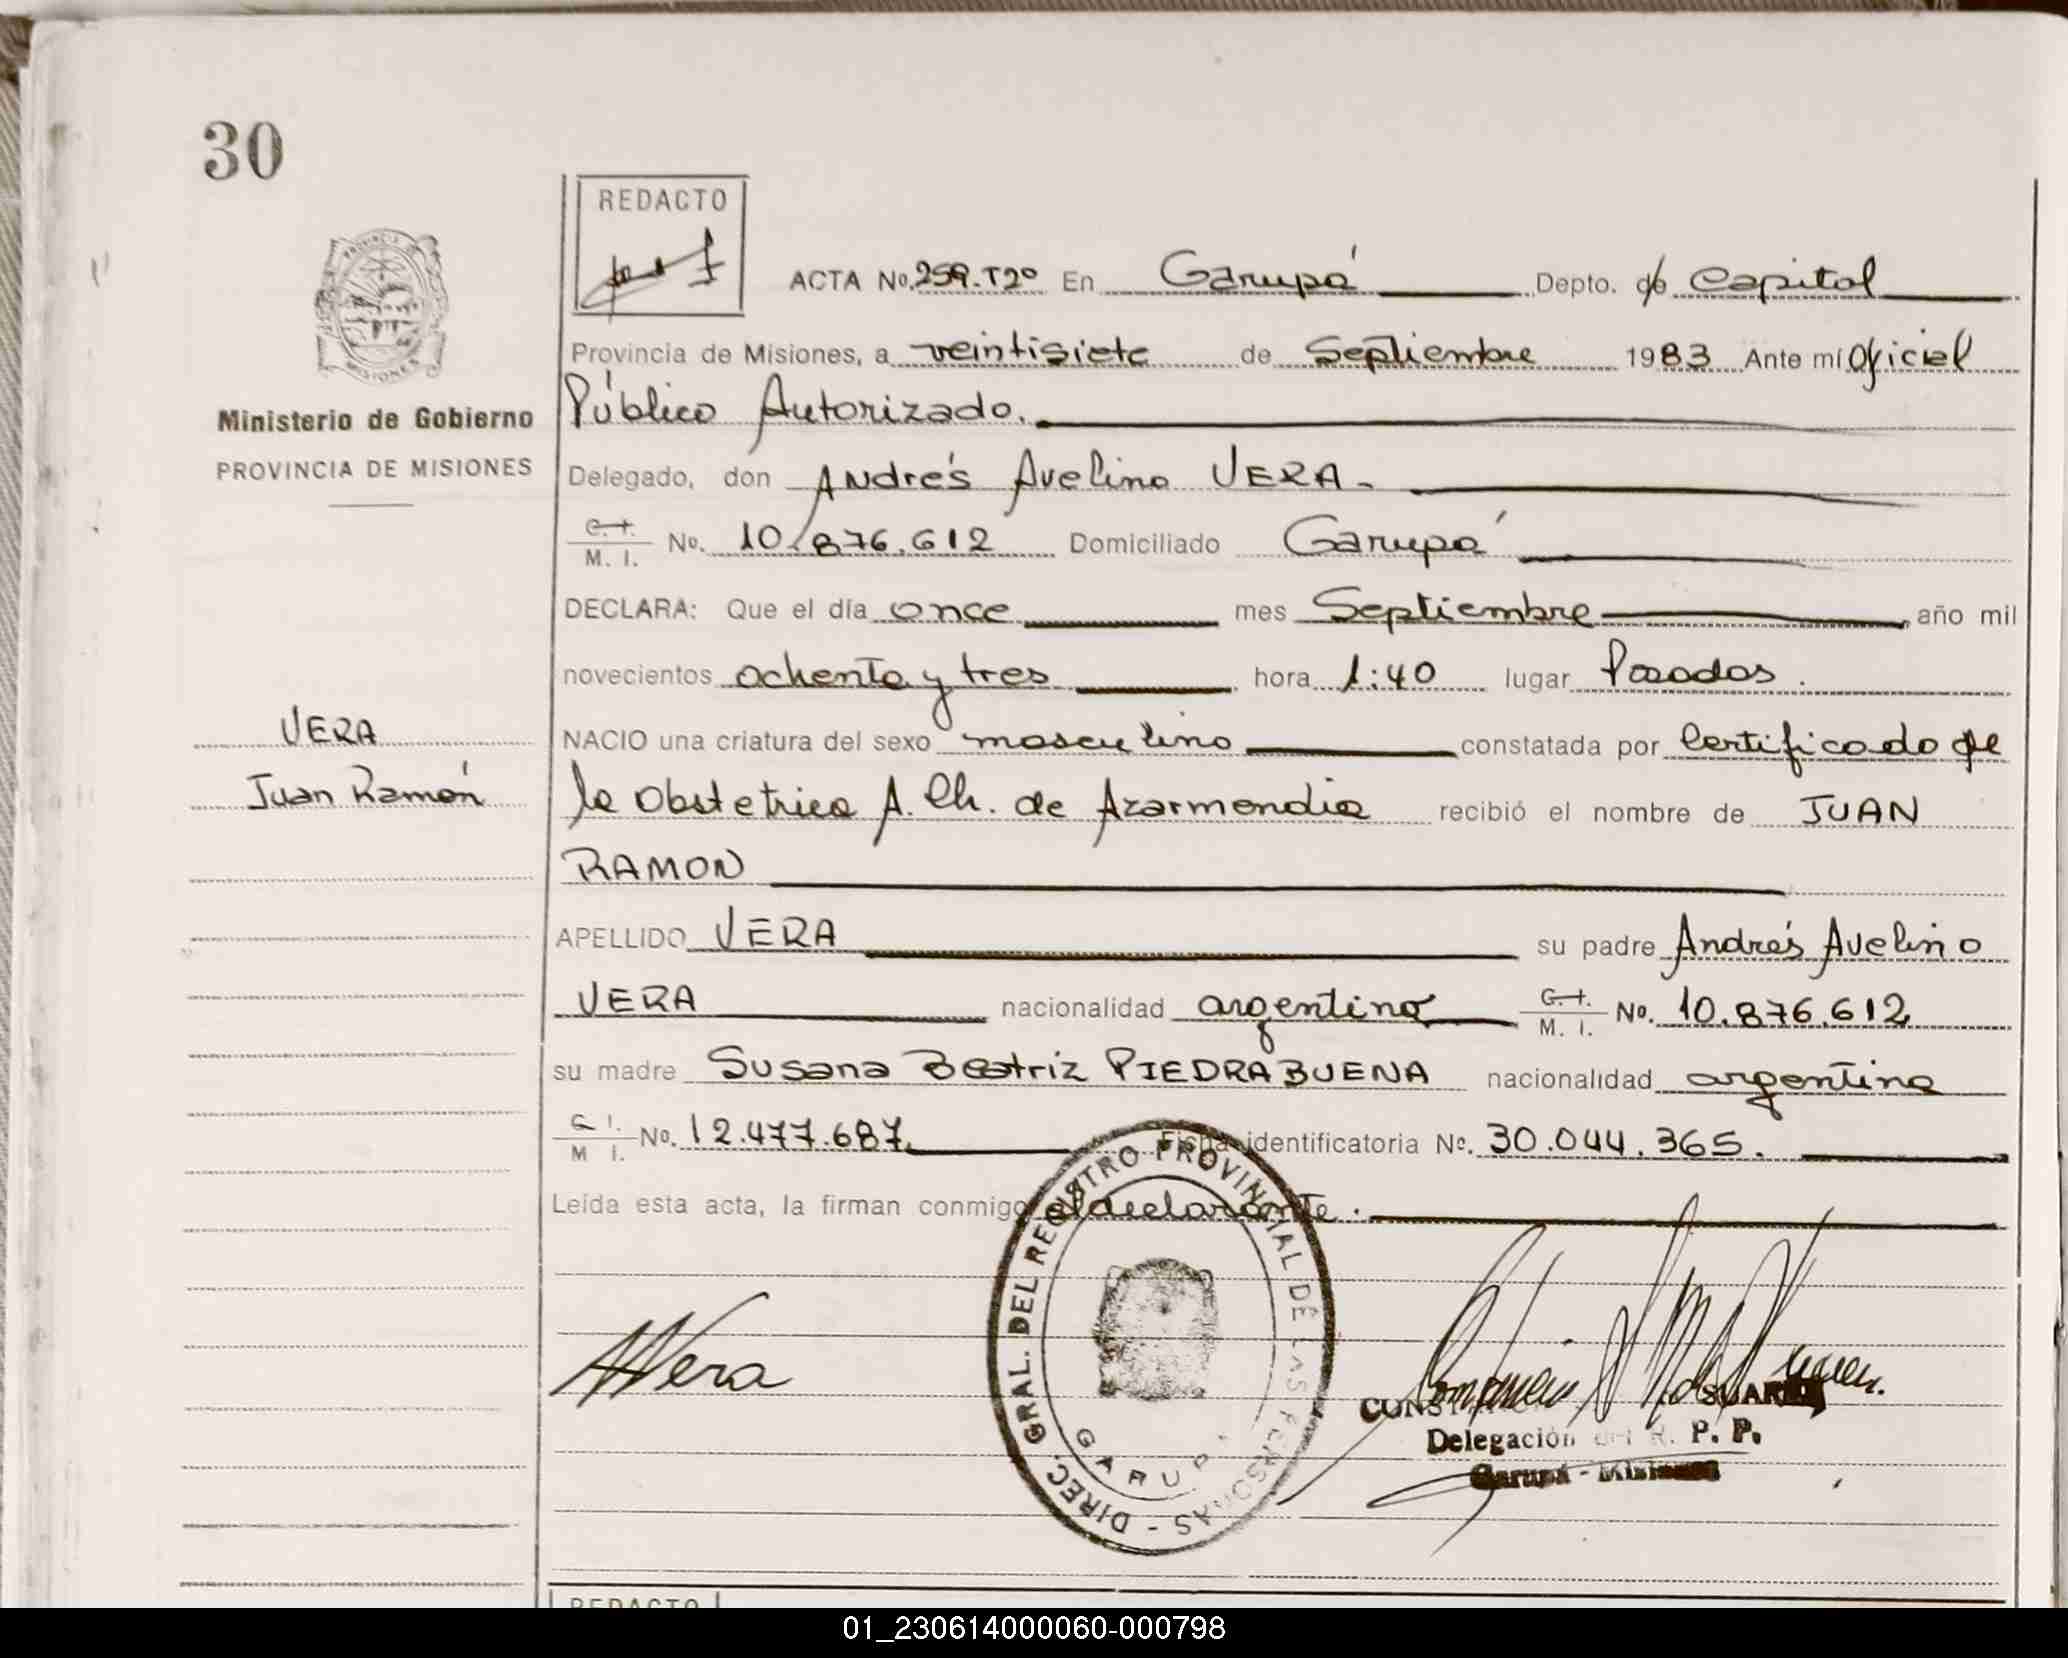 30
REDACTO
ACTA No. 259.T2º En Garupá Depto. d/o Capital
Provincia de Misiones, a veintisiete de Septiembre 1983 Ante mí Oficial
Público Autorizado.
Ministerio de Gobierno
PROVINCIA DE MISIONES
Delegado, don Andrés Avelino VERA.
C. I.
M. I. No. 10.876.612 Domiciliado Garupá
DECLARA: Que el día once mes Septiembre, año mil
novecientos ochenta y tres hora 1:40 lugar Posadas.
VERA
Juan Ramón
NACIO una criatura del sexo masculino constatada por Certificado de
la Obstetrica A. Ch. de Azarmendia recibió el nombre de JUAN
RAMON
APELLIDO VERA su padre Andrés Avelino
VERA nacionalidad argentino C. I.
M. I. No. 10.876.612
su madre Susana Beatriz PIEDRABUENA nacionalidad argentina
C. I.
M. I. No. 12.477.687. Ficha identificatoria No. 30.044.365.
Leída esta acta, la firman conmigo el declarante.
DIREC. GRAL. DEL REGISTRO PROVINCIAL DE LAS PERSONAS -
GARUPA
AVera
SUAREZ
Delegación del R. P. P.
Garupá - Misiones
REDACTO
01_230614000060-000798